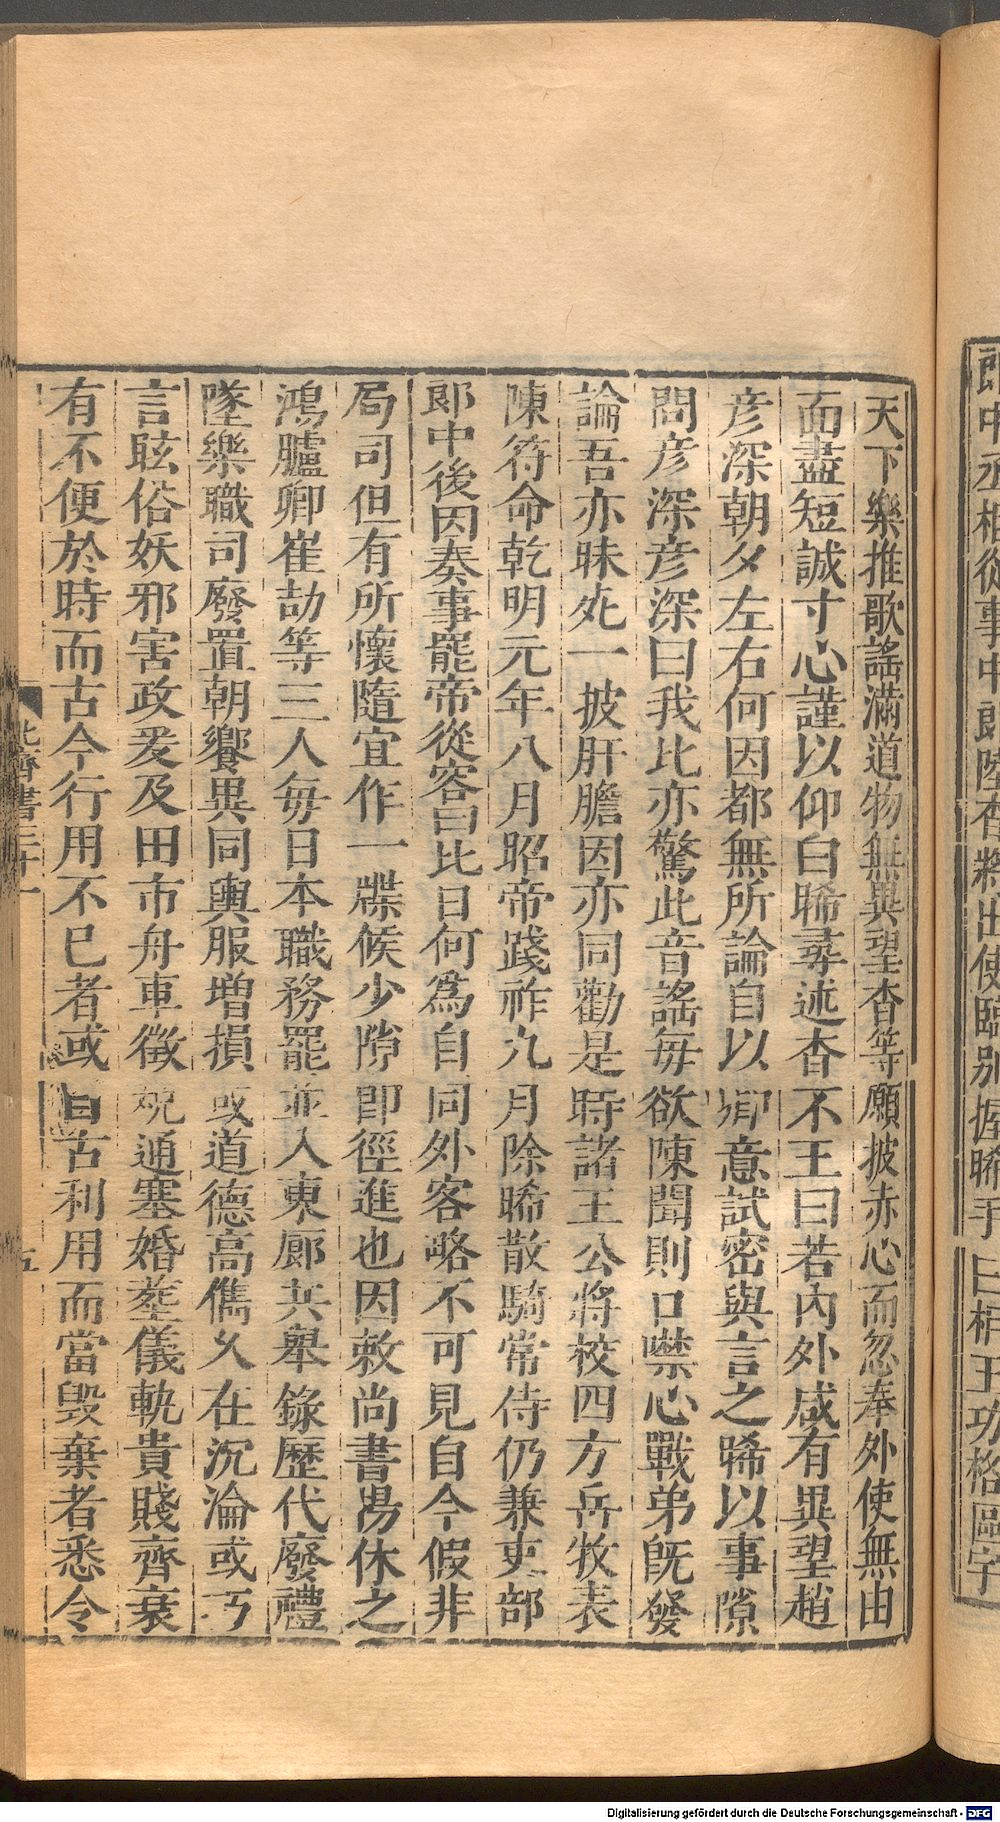 郎中丞相從事中郎陸杳將出使臨別握晞手曰相王功格區宇
天下樂推歌謠滿道物無異望杳等願披赤心而忽奉外使無由
面盡短誠寸心謹以仰白晞尋述杳不王曰若內外咸有異望趙
彦深朝夕左右何因都無所論自以卿意試密與言之晞以事隙
問彦深彦深曰我比亦驚此音謠每欲陳聞則口噤心戰弟旣發
論吾亦昧死一披肝膽因亦同勸是時諸王公將校四方岳牧表
陳符命乾明元年八月昭帝踐祚九月除晞散騎常侍仍兼吏部
郎中後因奏事罷帝從容曰比日何爲自同外客略不可見自今假非
局司但有所懷隨宜作一牒候少隙卽徑進也因敕尚書陽休之
鴻臚卿崔劼等三人每日本職務罷並入東廊共舉錄歷代廢禮
墜樂職司廢置朝饗異同輿服增損或道德高儁久在沉淪或巧
言眩俗妖邪害政爰及田市舟車徵稅通塞婚葬儀軌貴賤齊衰
有不便於時而古今行用不已者或自古利用而當毀棄者悉令
北齊書三十一
五
Digitalisierung gefördert durch die Deutsche Forschungsgemeinschaft - DFG